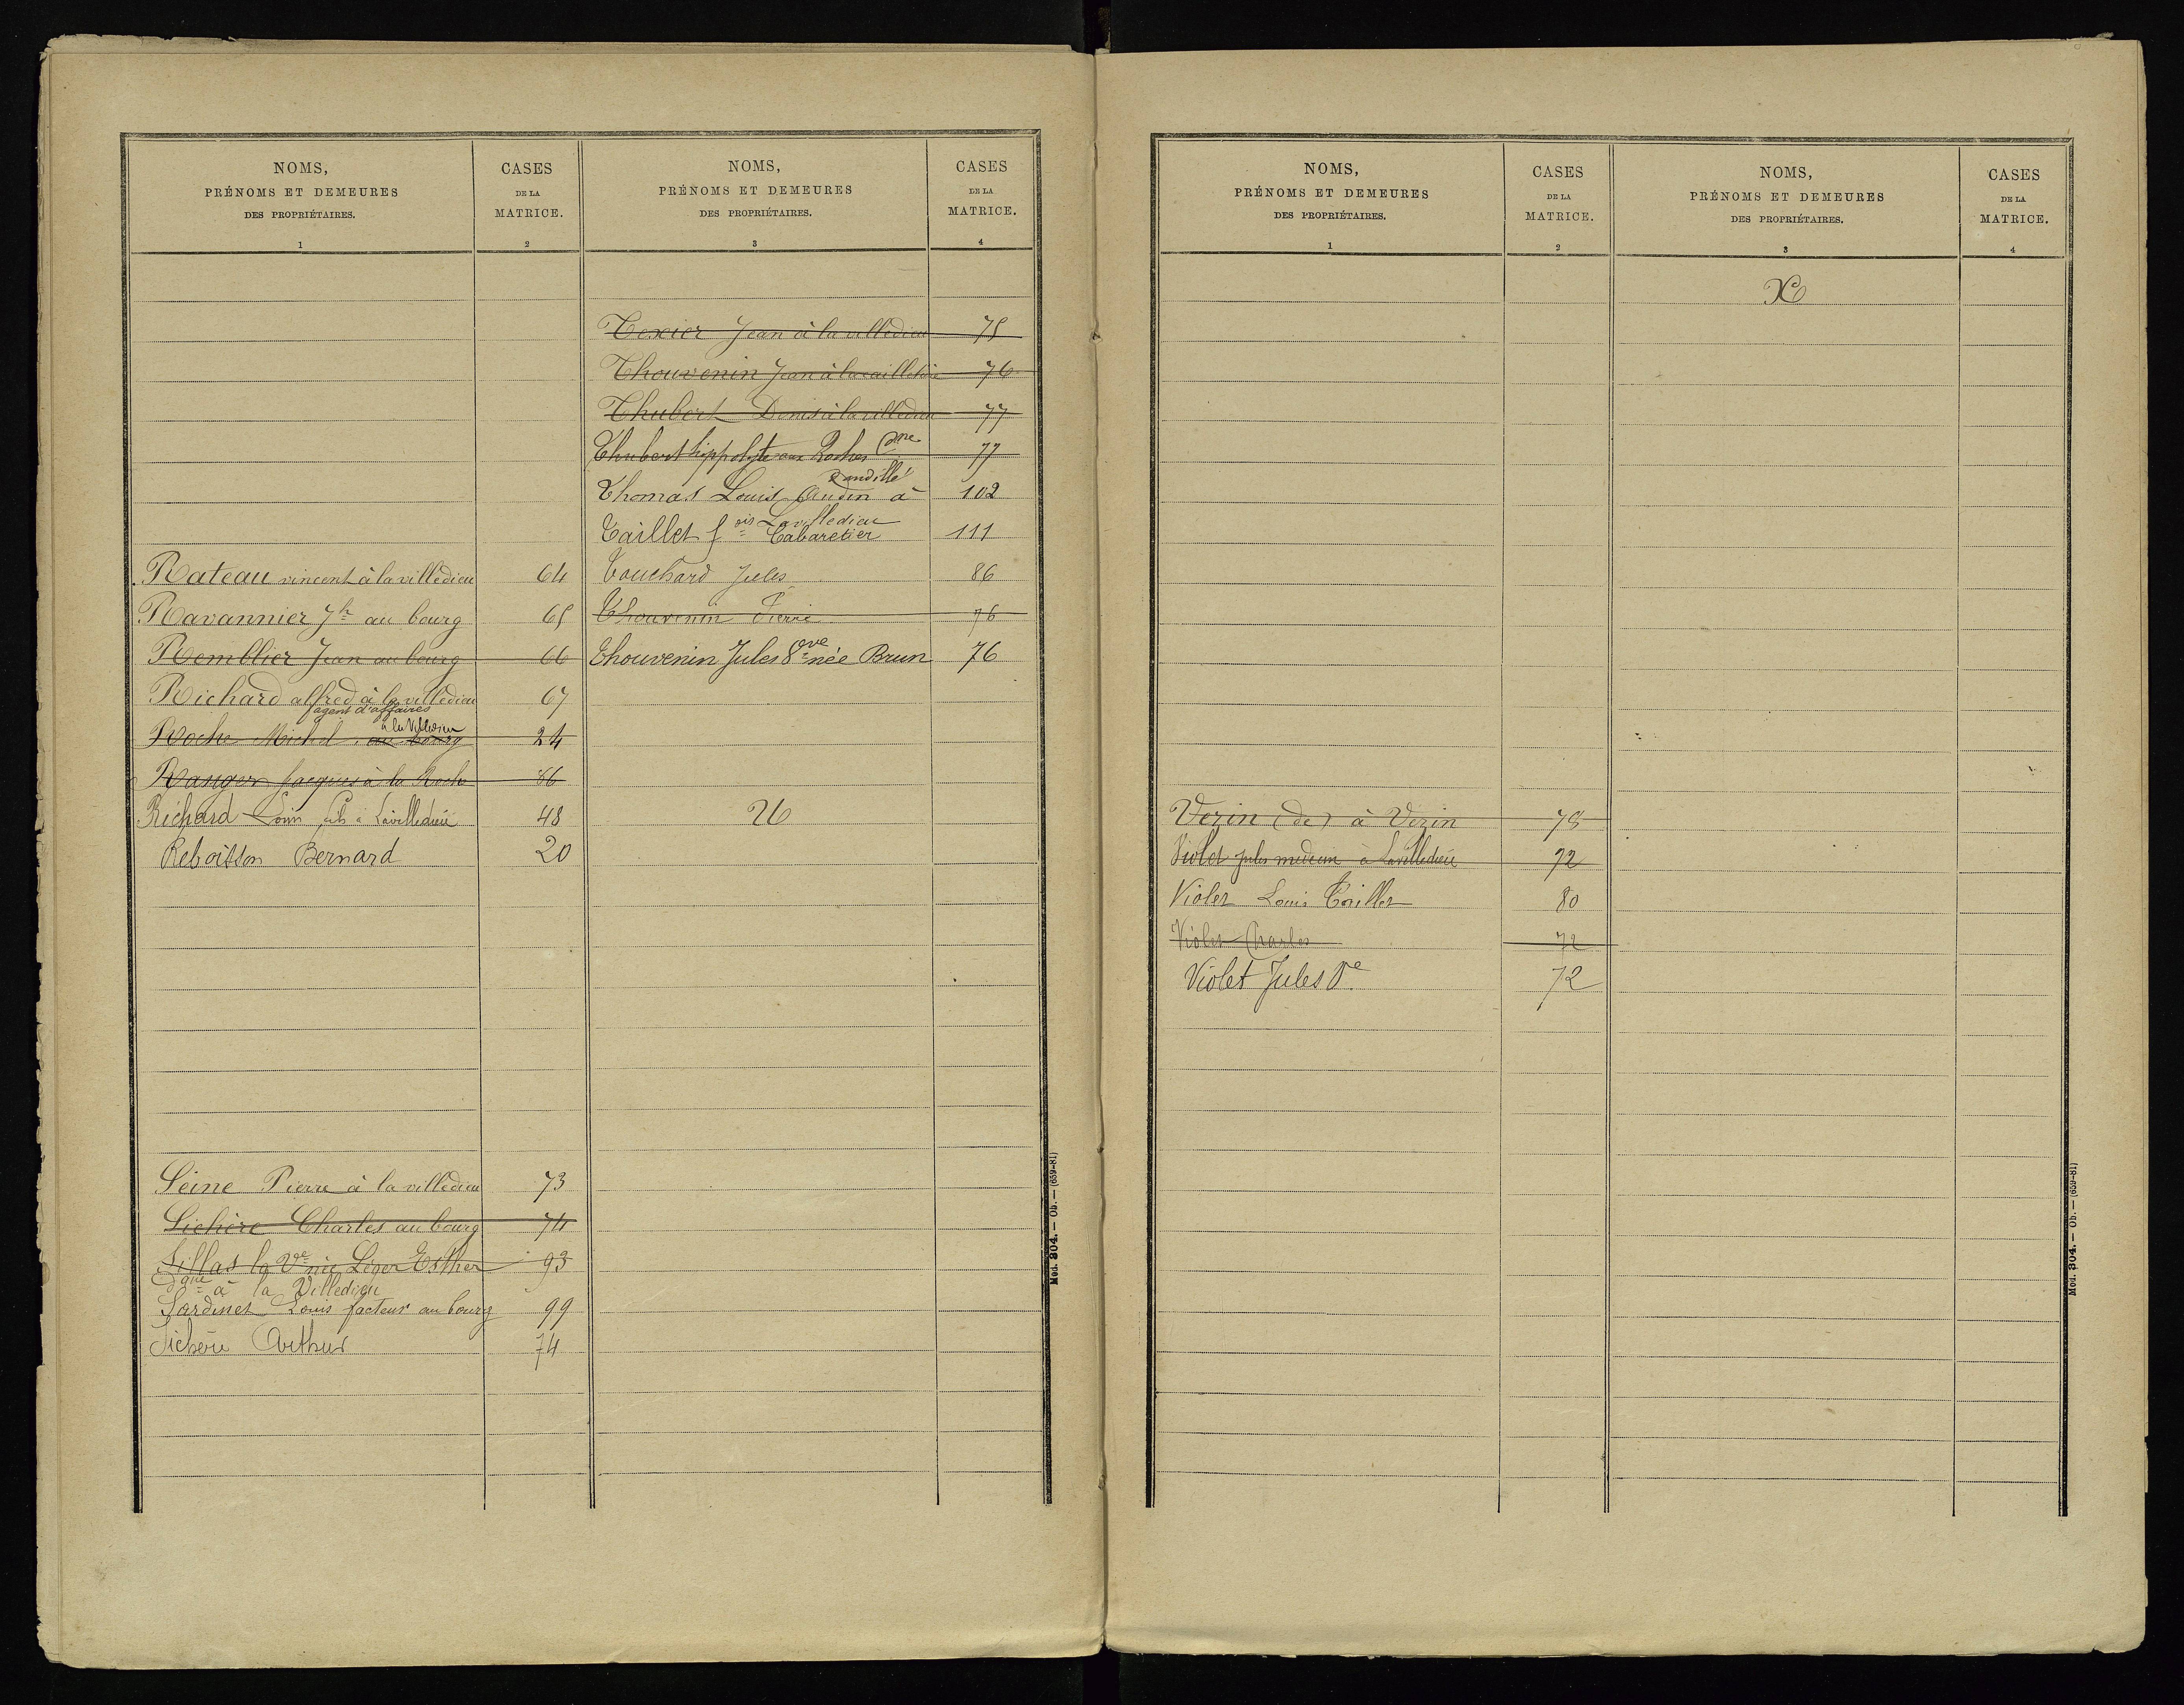 NOMS,
PRÉNOMS ET DEMEURES
DES PROPRIÉTAIRES.
1
CASES
DE LA
MATRICE.
2
Rateau vincent à la villedieu 64
Ravannier Jh au bourg 65
Remblier Jean au bourg 66
Richard alfred à la villedieu 67
agent d'affaires
à la Villedieu
Roche Michel au bourg 24
Ranger Jacques à la Roche 86
Richard Louis fils à Lavilledieu 48
Reboisson Bernard 20
Seine Pierre à la villedieu 73
Sichère Charles au bourg 74
Sillas la Ve née Léger Esther 93
à la Villedieu
Sardinet Louis facteur au bourg 99
Sichère Arthur 74
NOMS,
PRÉNOMS ET DEMEURES
DES PROPRIÉTAIRES.
3
CASES
DE LA
MATRICE.
4
Texier Jean à la villedieu 75
Thouvenin Jean à la 76
Thubert Denis à la villedieu 77
Thubert hippolyte aux Roches 77
Dandillé
Thomas Louis à 102
Lavilledieu
Taillet fois Cabaretier 111
Touchard Jules 86
Thouvenin Pierre 76
Thouvenin Jules née Brun 76
U
Mod. 304. — Ob. — (659-81)
NOMS,
PRÉNOMS ET DEMEURES
DES PROPRIÉTAIRES.
1
CASES
DE LA
MATRICE.
2
Vezin (de) à Vezin 78
Violet Jules medecin à Lavilledieu 72
Violet Louis 80
Violet Charles 72
Violet Jules Ve 72
NOMS,
PRÉNOMS ET DEMEURES
DES PROPRIÉTAIRES.
3
CASES
DE LA
MATRICE.
4
X
Mod. 304. — Ob. — (659-81)